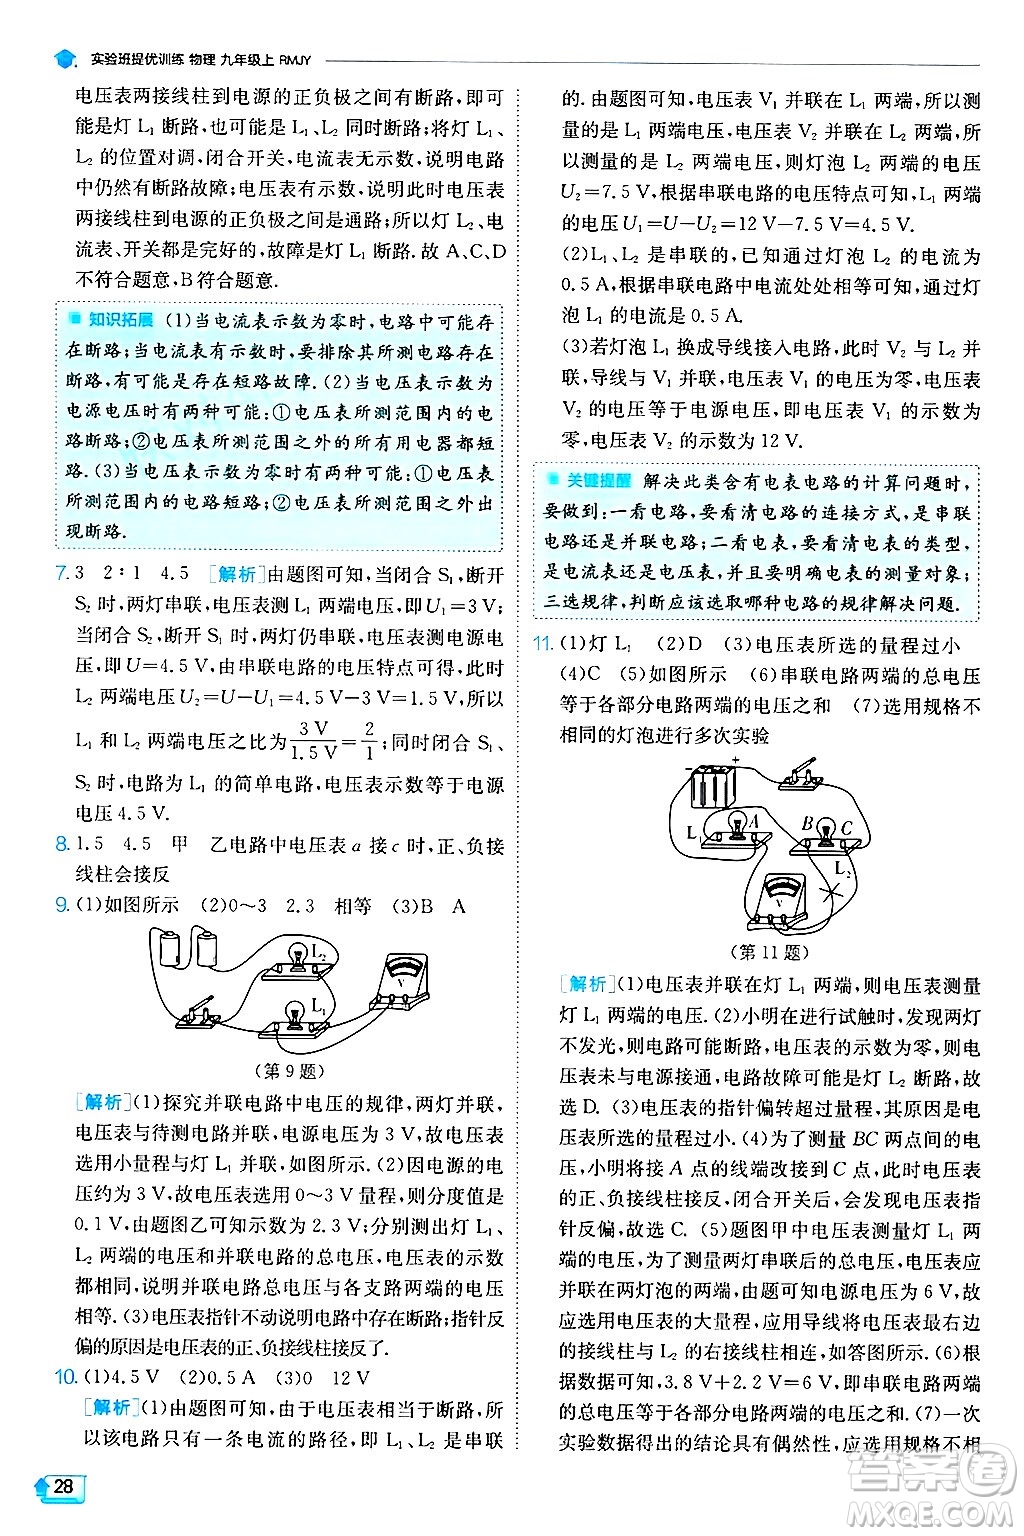 实验班提优训练 物理 九年级上 RMJY
电压表两接线柱到电源的正负极之间有断路,即可
能是灯 L₁ 断路,也可能是 L₁、L₂ 同时断路;将灯 L₁、
L₂ 的位置对调,闭合开关,电流表无示数,说明电路
中仍然有断路故障;电压表有示数,说明此时电压表
两接线柱到电源的正负极之间是通路;所以灯 L₂、电
流表、开关是完好的,故障是灯 L₁ 断路.故 A、C、D
不符合题意,B 符合题意.
知识拓展 (1)当电流表示数为零时,电路中可能存
在断路;当电流表有示数时,要排除其所测电路存在
断路,有可能是存在短路故障.(2)当电压表示数为
电源电压时有两种可能:①电压表所测范围内的电
路断路;②电压表所测范围之外的所有用电器都短
路.(3)当电压表示数为零时有两种可能:①电压表
所测范围内的电路短路;②电压表所测范围之外出
现断路.
7. 3 2∶1 4.5 [解析]由题图可知,当闭合 S₁,断开
S₂ 时,两灯串联,电压表测 L₁ 两端电压,即 U₁=3 V;
当闭合 S₂,断开 S₁ 时,两灯仍串联,电压表测电源电
压,即 U=4.5 V,由串联电路的电压特点可得,此时
L₂ 两端电压 U₂=U-U₁=4.5 V-3 V=1.5 V,所以
L₁ 和 L₂ 两端电压之比为 3 V/1.5 V=2/1;同时闭合 S₁、
S₂ 时,电路为 L₁ 的简单电路,电压表示数等于电源
电压 4.5 V.
8. 1.5 4.5 甲 乙电路中电压表 a 接 c 时,正、负接
线柱会接反
9. (1)如图所示 (2)0~3 2.3 相等 (3)B A
L₂
L₁
V
(第 9 题)
[解析](1)探究并联电路中电压的规律,两灯并联,
电压表与待测电路并联,电源电压为 3 V,故电压表
选用小量程与灯 L₁ 并联.(2)因电源的电压
大约为 3 V,故电压表选用 0~3 V 量程,则分度值为
0.1 V,由题图乙可知示数为 2.3 V;分别测出灯 L₁、
L₂ 两端的电压和并联电路的总电压,电压表的示数
都相同,说明并联电路总电压与各支路两端的电压
相等.(3)电压表指针不动说明电路中存在断路;指针反
偏的原因是电压表的正、负接线柱接反了.
10. (1)4.5 V (2)0.5 A (3)0 12 V
[解析](1)由题图可知,由于电压表相当于断路,所
以该电路只有一条电流的路径,即 L₁、L₂ 是串联
28
的.由题图可知,电压表 V₁ 并联在 L₁ 两端,所以测
量的是 L₁ 两端电压,电压表 V₂ 并联在 L₂ 两端,所
以测量的是 L₂ 两端电压,则灯泡 L₂ 两端的电压
U₂=7.5 V,根据串联电路的电压特点可知,L₁ 两
端的电压 U₁=U-U₂=12 V-7.5 V=4.5 V.
(2)L₁、L₂ 是串联的,已知通过灯泡 L₂ 的电流为
0.5 A,根据串联电路中电流处处相等可知,通过灯
泡 L₁ 的电流是 0.5 A.
(3)若灯泡 L₁ 换成导线接入电路,此时 V₂ 与电源并
联,导线与 V₁ 并联.导线两端的电压为零,电压表
V₂ 的电压等于电源电压,即电压表 V₁ 的示数为
零,电压表 V₂ 的示数为 12 V.
关键提醒 解决此类含有电表电路的计算问题时,
要做到:一看电路,要看清电路的连接方式,是串联
电路还是并联电路;二看电表,要看清电表的类型,
是电流表还是电压表,并要明确电表的测量对象;
三选规律,判断应该选取哪种电路的规律解决问题.
11. (1)灯 L₁ (2)D (3)电压表所选的量程过小
(4)C (5)如图所示 (6)串联电路两端的总电压
等于各部分电路两端的电压之和 (7)选用规格不
相同的灯泡进行多次实验
- +
L₁ A B C
L₂
(第 11 题)
[解析](1)电压表并联在灯 L₁ 两端,则电压表测量
灯 L₁ 两端的电压.(2)小明在进行试触时,发现两灯
不发光,则电路可能断路,电压表的示数为零,则电
压表未与电源接通,电路故障可能是灯 L₁ 断路,故
选 D.(3)电压表的指针偏转超过量程,其原因是电
压表所选的量程过小.(4)为了测量 BC 两点间的电
压,小明将接 A 点的线端改接到 C 点,此时电压表
正、负接线柱接反,闭合开关后,会发现电压表指
针反偏,故选 C.(5)题图甲中电压表测量灯 L₁ 两
端的电压,为了测量两灯串联后的总电压,电压表应
并联在两灯泡的两端,此时电压表示数应为 6 V,故
应选用电压表的大量程,应用导线将电压表最右边
的接线柱与 L₂ 的右接线柱相连,如图所示.(6)根
据数据可知,3.8 V+2.2 V=6 V,串联电路两端的
总电压等于各部分电路两端的电压之和.(7)一次
实验数据得出的结论具有偶然性,应选用规格不相
答案卷
MXQE.COM